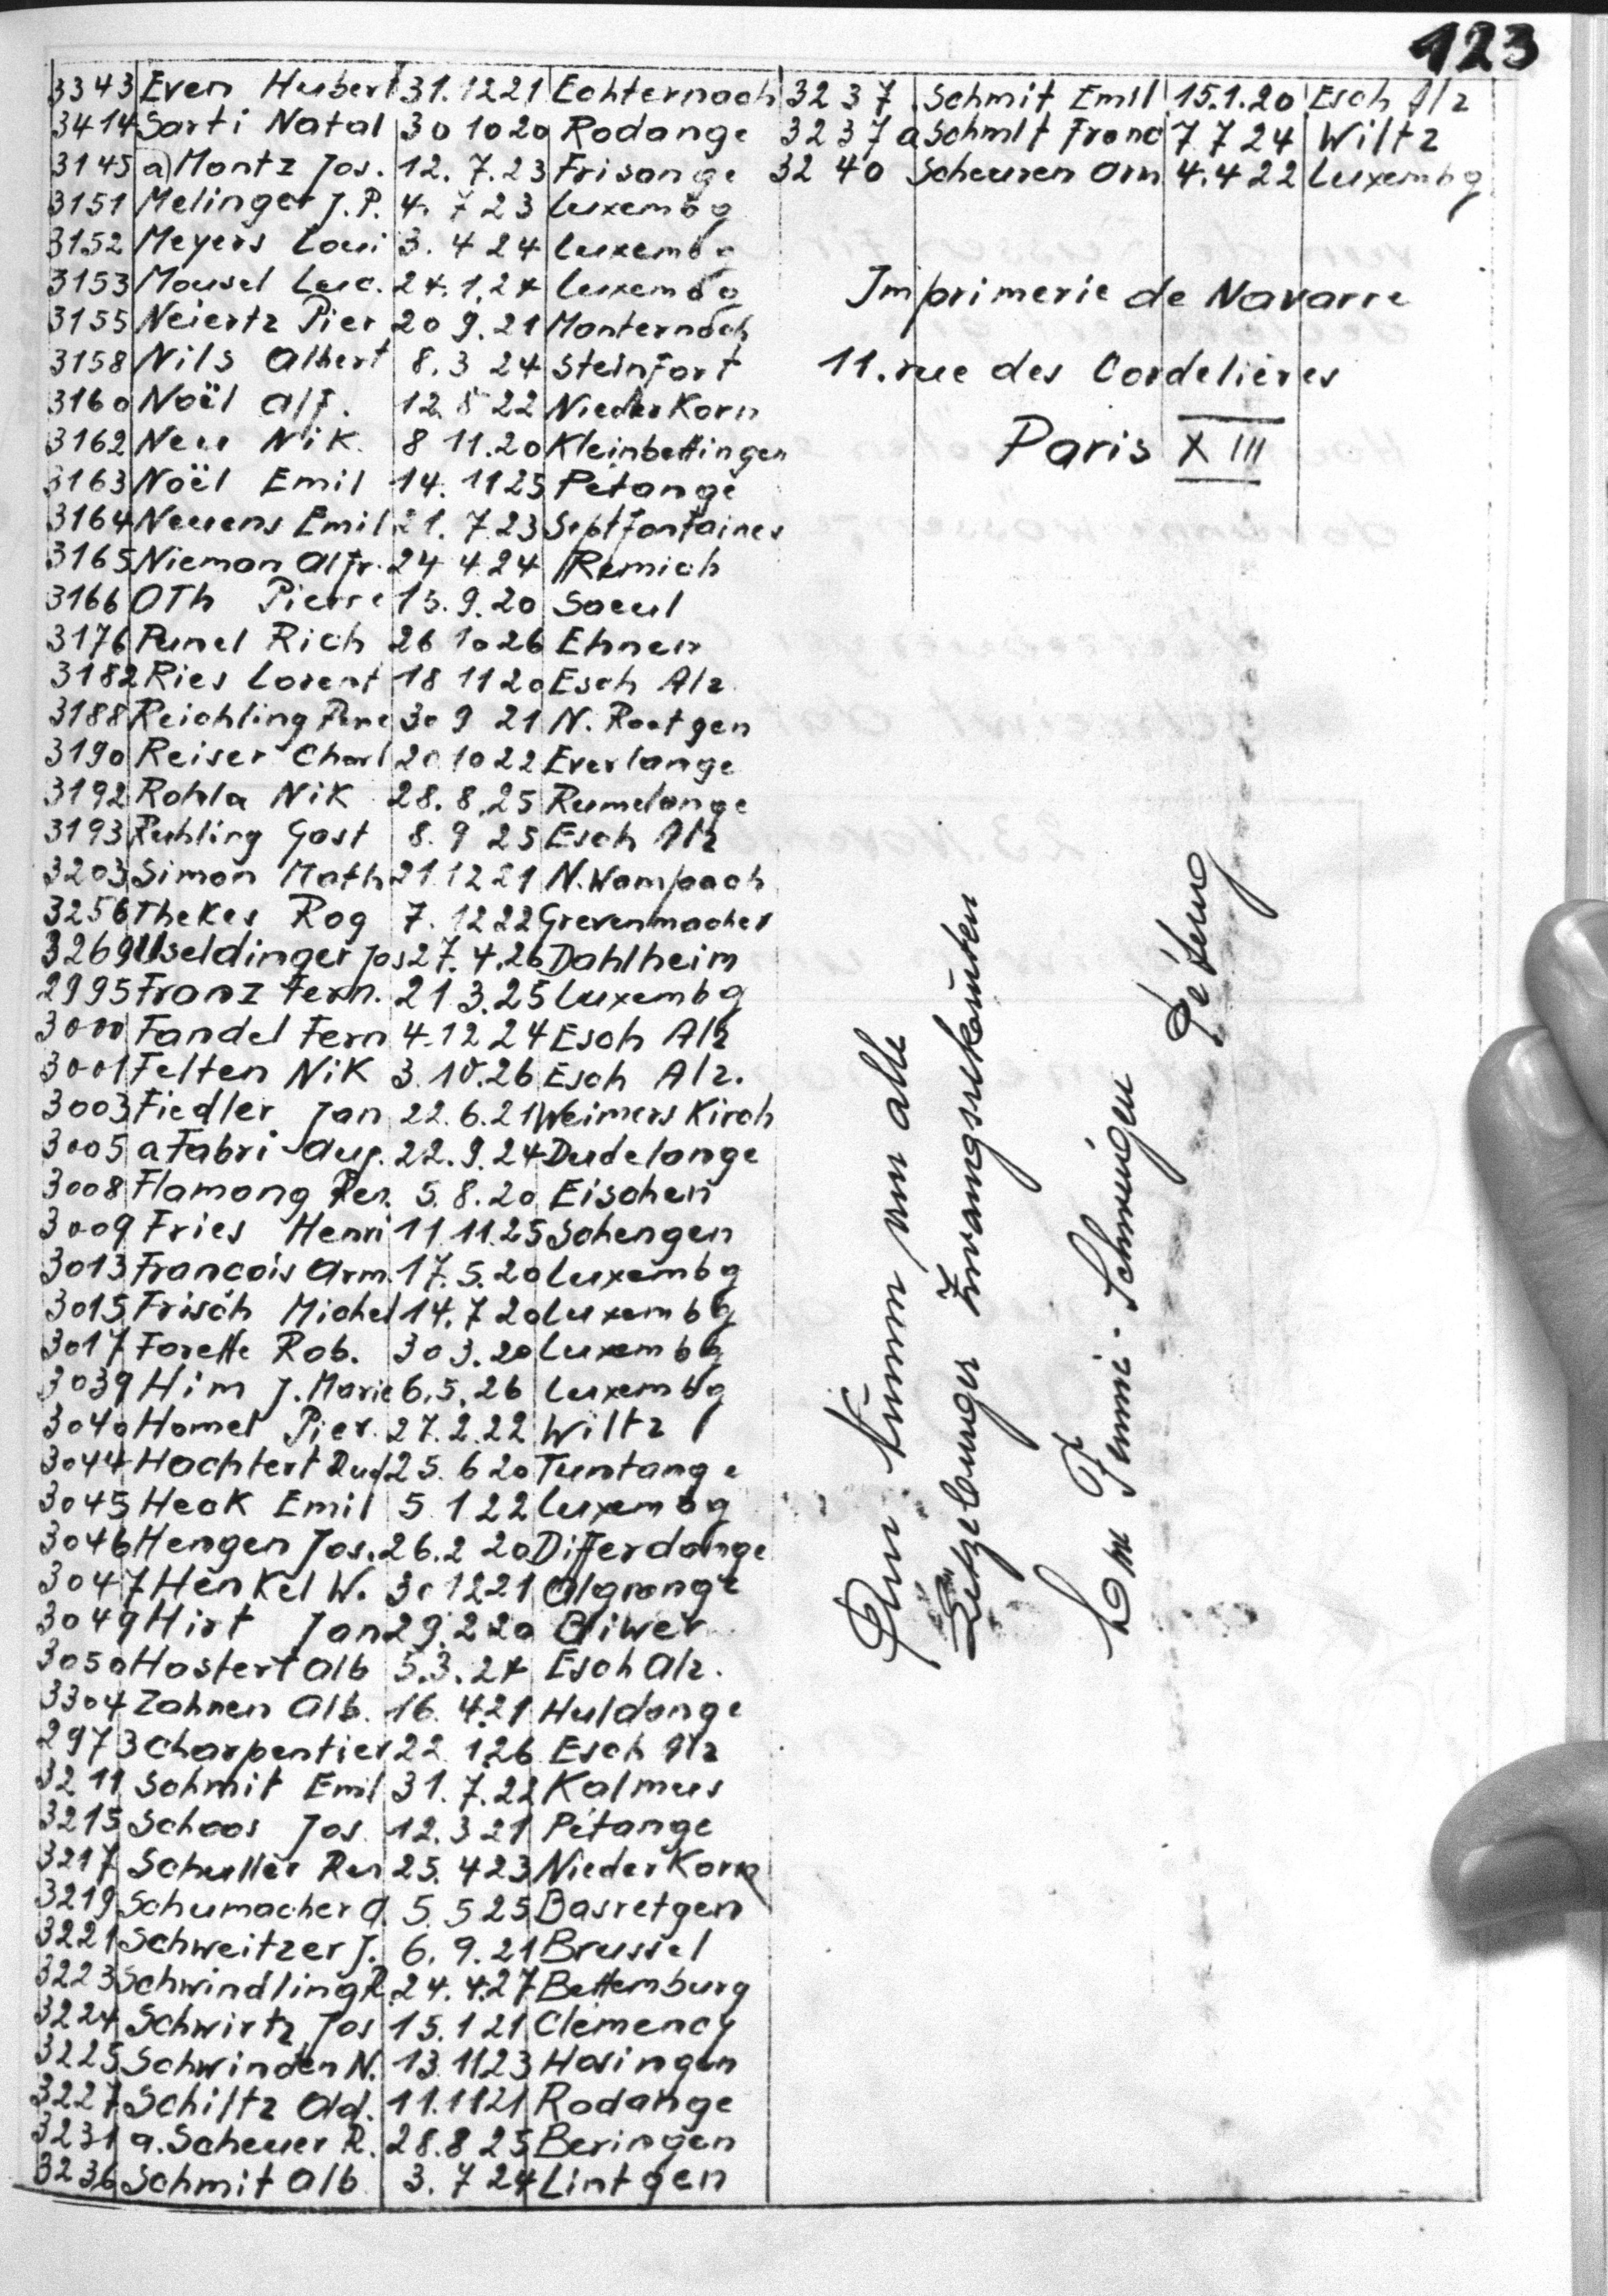 123
3343 Even Hubert 31.12 21 Echternach
3414 Sarti Natal 30 10 20 Rodange
3145 a) Mantz Jos. 12. 7. 23 Frisange
3151 Melinger J. P. 4. 7 23 Luxembg
3152 Meyers Loui 3. 4 24 Luxembg
3153 Mousel Luc. 24. 1. 24 Luxembg
3155 Neiertz Pier 20 9. 21 Manternach
3158 Nils Albert 8. 3 24 Steinfort
3160 Noël Alf. 12. 8 22 Niederkorn
3162 Neu Nik. 8 11. 20 Kleinbettingen
3163 Noël Emil 14. 11 25 Pétange
3164 Neuens Emil 21. 7. 23 Septfontaines
3165 Nieman Alfr. 24 4 24 Remich
3166 Oth Pierre 15. 9. 20 Saeul
3176 Punel Rich 26 10 26 Ehnen
3182 Ries Lorent 18 11 20 Esch Alz.
3188 Reichling 30 9 21 N. Roetgen
3190 Reiser Charl 20 10 22 Everlange
3192 Rohla Nik 28. 8. 25 Rumelange
3193 Ruhling Gast 8. 9 25 Esch Alz
3203 Simon Math 21. 12 21 N. Wampach
3256 Thekes Rog 7. 12 22 Grevenmacher
3269 Useldinger Jos 27. 4. 26 Dahlheim
2995 Franz Fern. 21. 3. 25 Luxembg
3000 Fandel Fern 4. 12 24 Esch Alz
3001 Felten Nik 3. 10. 26 Esch Alz.
3003 Fiedler Jan 22. 6. 21 Weimerskirch
3005 a Fabri Aug. 22. 9. 24 Dudelange
3008 Flamang Ren. 5. 8. 20 Eischen
3009 Fries Henri 11. 11. 25 Schengen
3013 Francois Arm. 17. 5. 20 Luxembg
3015 Frisch Michel 14. 7 20 Luxembg
3017 Forette Rob. 30 3. 20 Luxembg
3039 Him J. Marie 6. 5. 26 Luxembg
3040 Hamel Pier. 27. 2. 22 Wiltz
3044 Hachtert Rud 25. 6 20 Tuntange
3045 Heck Emil 5. 1 22 Luxembg
3046 Hengen Jos. 26. 2 20 Differdange
3047 Henkel W. 30 12 21 Algrange
3049 Hirt Jan 29. 2 20 Biwer
3050 Hostert Alb 5. 3. 24 Esch Alz.
3304 Zahnen Alb. 16. 4. 21 Huldange
2973 Charpentier 22. 1. 26 Esch Alz
3211 Schmit Emil 31. 7. 22 Kalmus
3215 Schoos Jos. 12. 3 21 Pétange
3217 Schuller Ren 25. 4 23 Niederkorn
3219 Schumacher A. 5. 5 25 Basretgen
3221 Schweitzer J. 6. 9. 21 Brussel
3223 Schwindling R. 24. 4. 27 Bettemburg
3224 Schwirtz Jos 15. 1 21 Clémency
3225 Schwinden N. 13 11 23 Hosingen
3227 Schiltz Ad. 11. 11 21 Rodange
3231 a. Scheuer R. 28. 8 25 Beringen
3236 Schmit Alb 3. 7 24 Lintgen
3237 Schmit Emil 15. 1. 20 Esch Alz
3237 a Schmit Franc 7. 7 24 Wiltz
3240 Scheuren Arm 4. 4 22 Luxembg
Imprimerie de Navarre
11. rue des Cordelières
Paris XIII
Dun Numm vun alle
Lëtzebuerger Zwangsrekruten
Schweigen